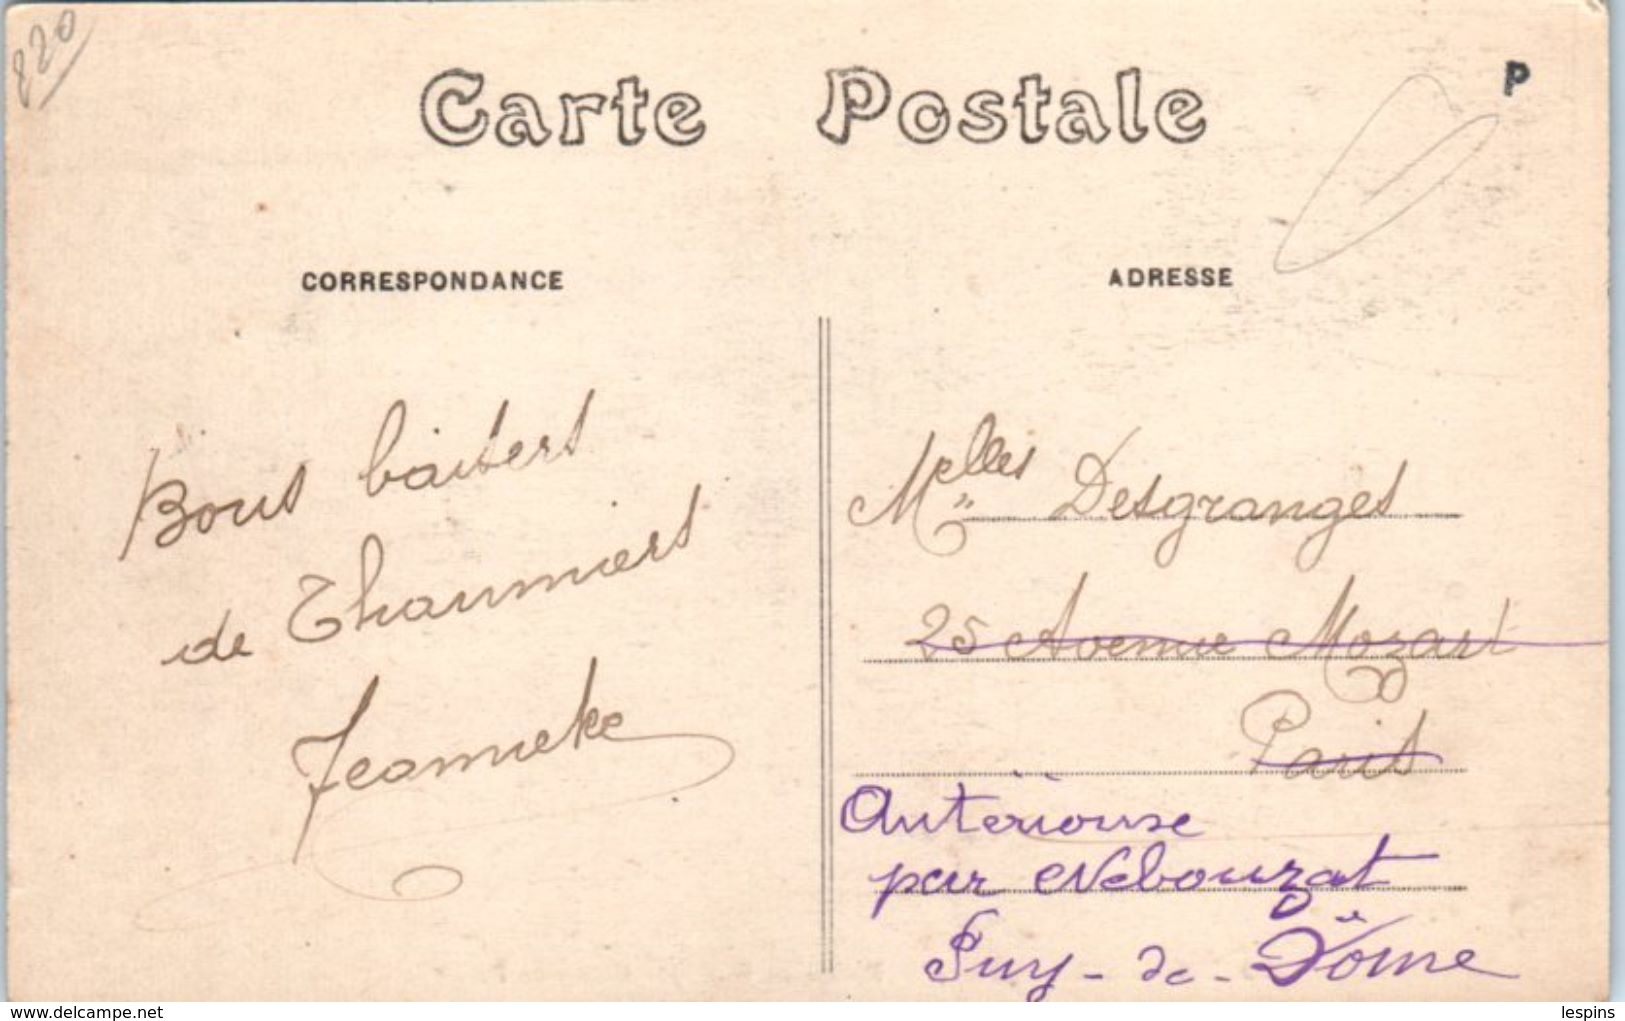 820
Carte Postale
P
CORRESPONDANCE
ADRESSE
Bons baisers
de Thaumiers
Jeanneke
Melles Desgranges
25 Avenue Mozart
Paris
Anterioux
par Nebouzat
Puy-de-Dôme
www.delcampe.net
lespins